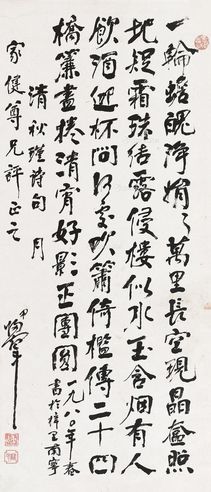 一輪蟾魄淨娟々萬里長空現晶奩照
地疑霜珠結露侵樓似水玉含烟有人
飲酒迎杯問何處吹簫倚檻傳二十四
橋簾盡捲清宵好影正團圓 一九八〇年春
書於 南寧
清秋瑾詩句 月
家健尊兄評正之